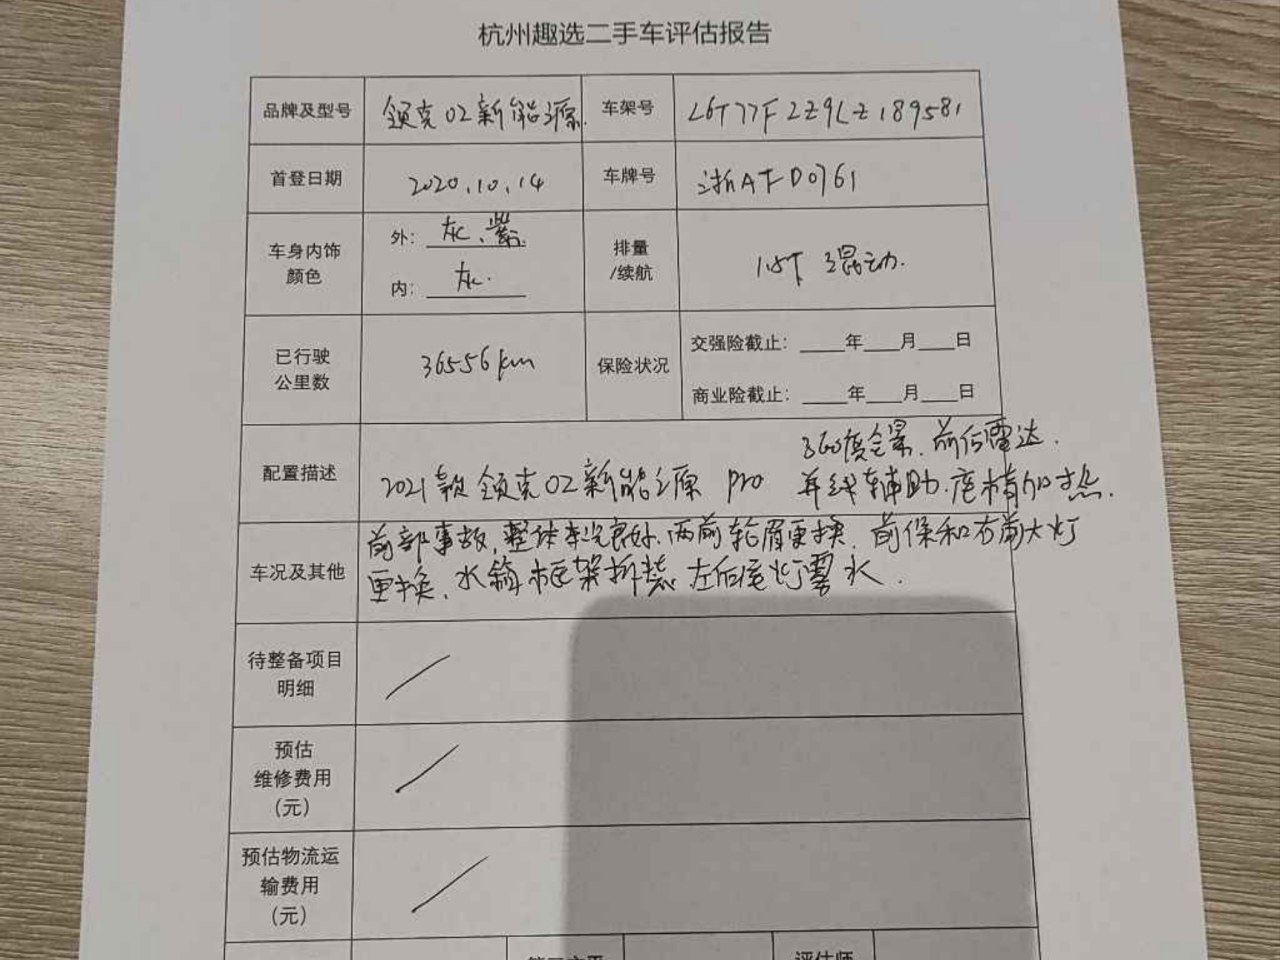 杭州趣选二手车评估报告
品牌及型号 领克02新能源. 车架号 L6T77F2Z9LZ189581
首登日期 2020.10.14 车牌号 浙AFD0761
车身内饰
颜色
外: 灰、紫
内: 灰.
排量
/续航
1.5T 混动.
已行驶
公里数
36556km
保险状况
交强险截止: ____年___月___日
商业险截止: ____年___月___日
配置描述
360度全景. 前后雷达.
2021款领克02新能源 pro 并线辅助. 座椅加热.
车况及其他
前部事故, 整体车况良好. 两前轮眉更换. 前保和右前大灯
更换. 水箱框架拆装 左后尾灯雾水.
待整备项目
明细
预估
维修费用
(元)
预估物流运
输费用
(元)
评估师